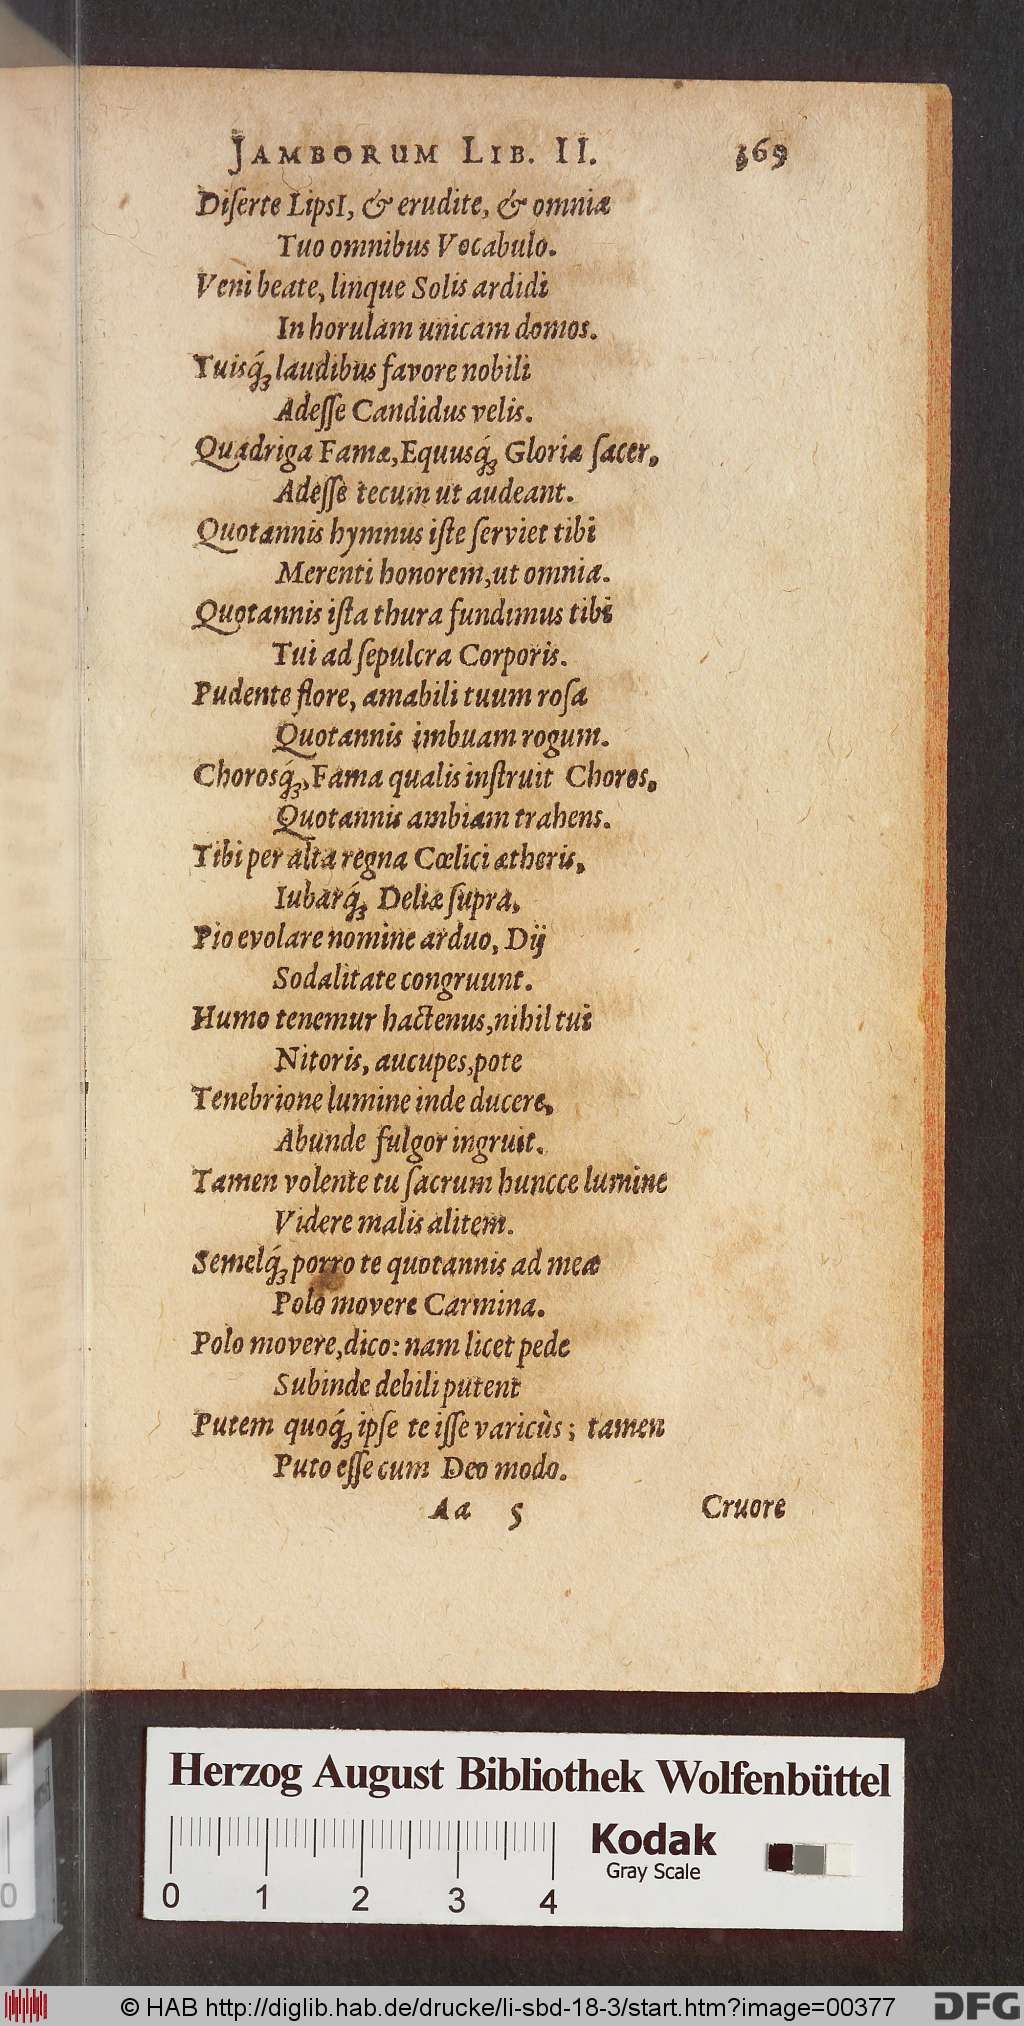 JAMBORUM LIB. II. 369
Diſerte LipsI, & erudite, & omniæ
Tuo omnibus Vocabulo.
Veni beate, linque Solis ardidi
In horulam unicam domos.
Tuisq́ꝫ laudibus favore nobili
Adeſſe Candidus velis.
Quadriga Famæ, Equusq́ꝫ Gloriæ ſacer,
Adeſſe tecum ut audeant.
Quotannis hymnus iſte ſerviet tibi
Merenti honorem, ut omnia.
Quotannis iſta thura fundimus tibi
Tui ad ſepulcra Corporis.
Pudente flore, amabili tuum roſa
Quotannis imbuam rogum.
Chorosq́ꝫ, Fama qualis inſtruit Choros,
Quotannis ambiam trahens.
Tibi per alta regna Cœlici ætheris,
Iubarq́ꝫ Deliæ ſupra,
Pio evolare nomine arduo, Dij
Sodalitate congruunt.
Humo tenemur hactenus, nihil tui
Nitoris, aucupes, pote
Tenebrione lumine inde ducere,
Abunde fulgor ingruit.
Tamen volente tu ſacrum huncce lumine
Videre malis alitem.
Semelq́ꝫ porro te quotannis ad meæ
Polo movere Carmina.
Polo movere, dico: nam licet pede
Subinde debili putent
Putem quoq́ꝫ ipſe te iſſe varicùs; tamen
Puto eſſe cum Deo modo.
Aa 5 Cruore
Herzog August Bibliothek Wolfenbüttel
Kodak
Gray Scale
0 1 2 3 4
© HAB http://diglib.hab.de/drucke/li-sbd-18-3/start.htm?image=00377
DFG